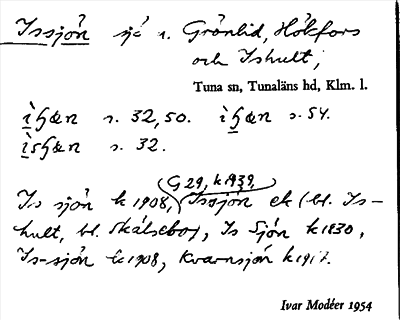 Issjön sjö n. Grönlid, Hökfors
och Ishult;
Tuna sn, Tunaläns hd, Klm. l.
s. 32, 50. s. 54.
s. 32.
G 29, k 1939,
Is sjön k 1908, Issjön ek (bl. Is-
hult, bl. Skälsebo), Is Sjön k 1830,
Is-sjön k 1908, Kvarnsjön k 1917.
Ivar Modéer 1954